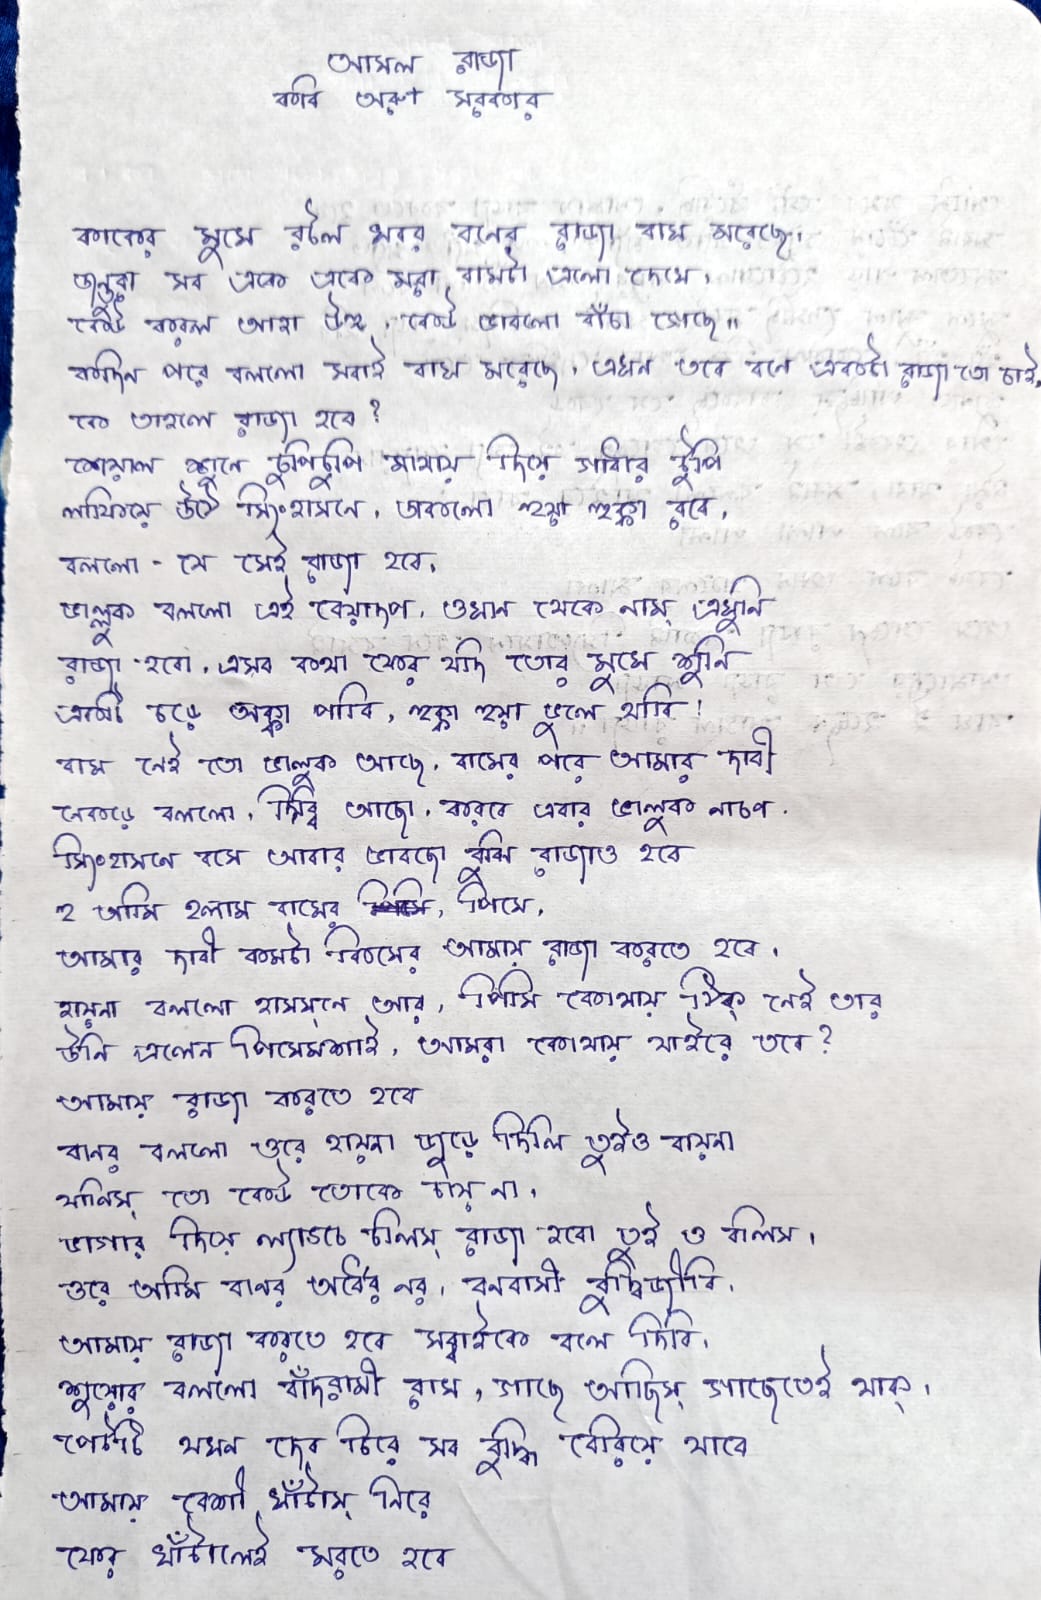 আসল রাজা
কবি অরুণ সরকার
কাকের মুখে রটল খবর বনের রাজা বাঘ মরেছে।
জন্তুরা সব একে একে মরা বাঘটা এলো দেখে,
কেউ করল আহা উহু, কেউ ভাবলো বাঁচা গেছে॥
কদিন পরে বললো সবাই বাঘ মরেছে, এখন তবে বনে একটা রাজা তো চাই,
কে তাহলে রাজা হবে?
শেয়াল শুনে চুপিচুপি মাথায় দিয়ে গাধার টুপি
লাফিয়ে উঠে সিংহাসনে, ডাকলো হুয়া হুক্কা রবে,
বললো - সে সেই রাজা হবে,
ভাল্লুক বললো এই বেয়াদপ, ওখান থেকে নাম্ এখুনি
রাজা হবো, এসব কথা ফের যদি তোর মুখে শুনি
একটি চড়ে অক্কা পাবি, হুক্কা হুয়া ভুলে যাবি!
বাঘ নেই তো ভালুক আছে, বাঘের পরে আমার দাবী
নেকড়ে বললো, দিব্বি আছো, করবে এবার ভালুক নাচণ,
সিংহাসনে বসে আবার ভাবছো বুঝি রাজাও হবে
হ আমি হলাম বাঘের পিসে,
আমার দাবী কমটা কিসের আমায় রাজা করতে হবে,
হায়না বললো হাসসনে আর, পিসি কোথায় ঠিক্ নেই তার
উনি এলেন পিসেমশাই, আমরা কোথায় যাইরে তবে?
আমায় রাজা করতে হবে
বানর বললো ওরে হায়না জুড়ে দিলি তুইও বায়না
যানিস্ তো কেউ তোকে চায় না,
ভাগার দিয়ে ল্যাঙচে চলিস্ রাজা হবো তুই ও বলিস,
ওরে আমি বানর অর্ধের নর, বনবাসী বুদ্ধিজীবি,
আমায় রাজা করতে হবে সব্বাইকে বলে দিবি,
শুয়োর বললো বাঁদরামী রাখ, গাছে আছিস্ গাছেতেই থাক্,
পেটটি যখন দেব চিরে সব বুদ্ধি বেরিয়ে যাবে
আমায় বেশী ঘাঁটাস্ নিরে
ফের ঘাঁটালেই মরতে হবে